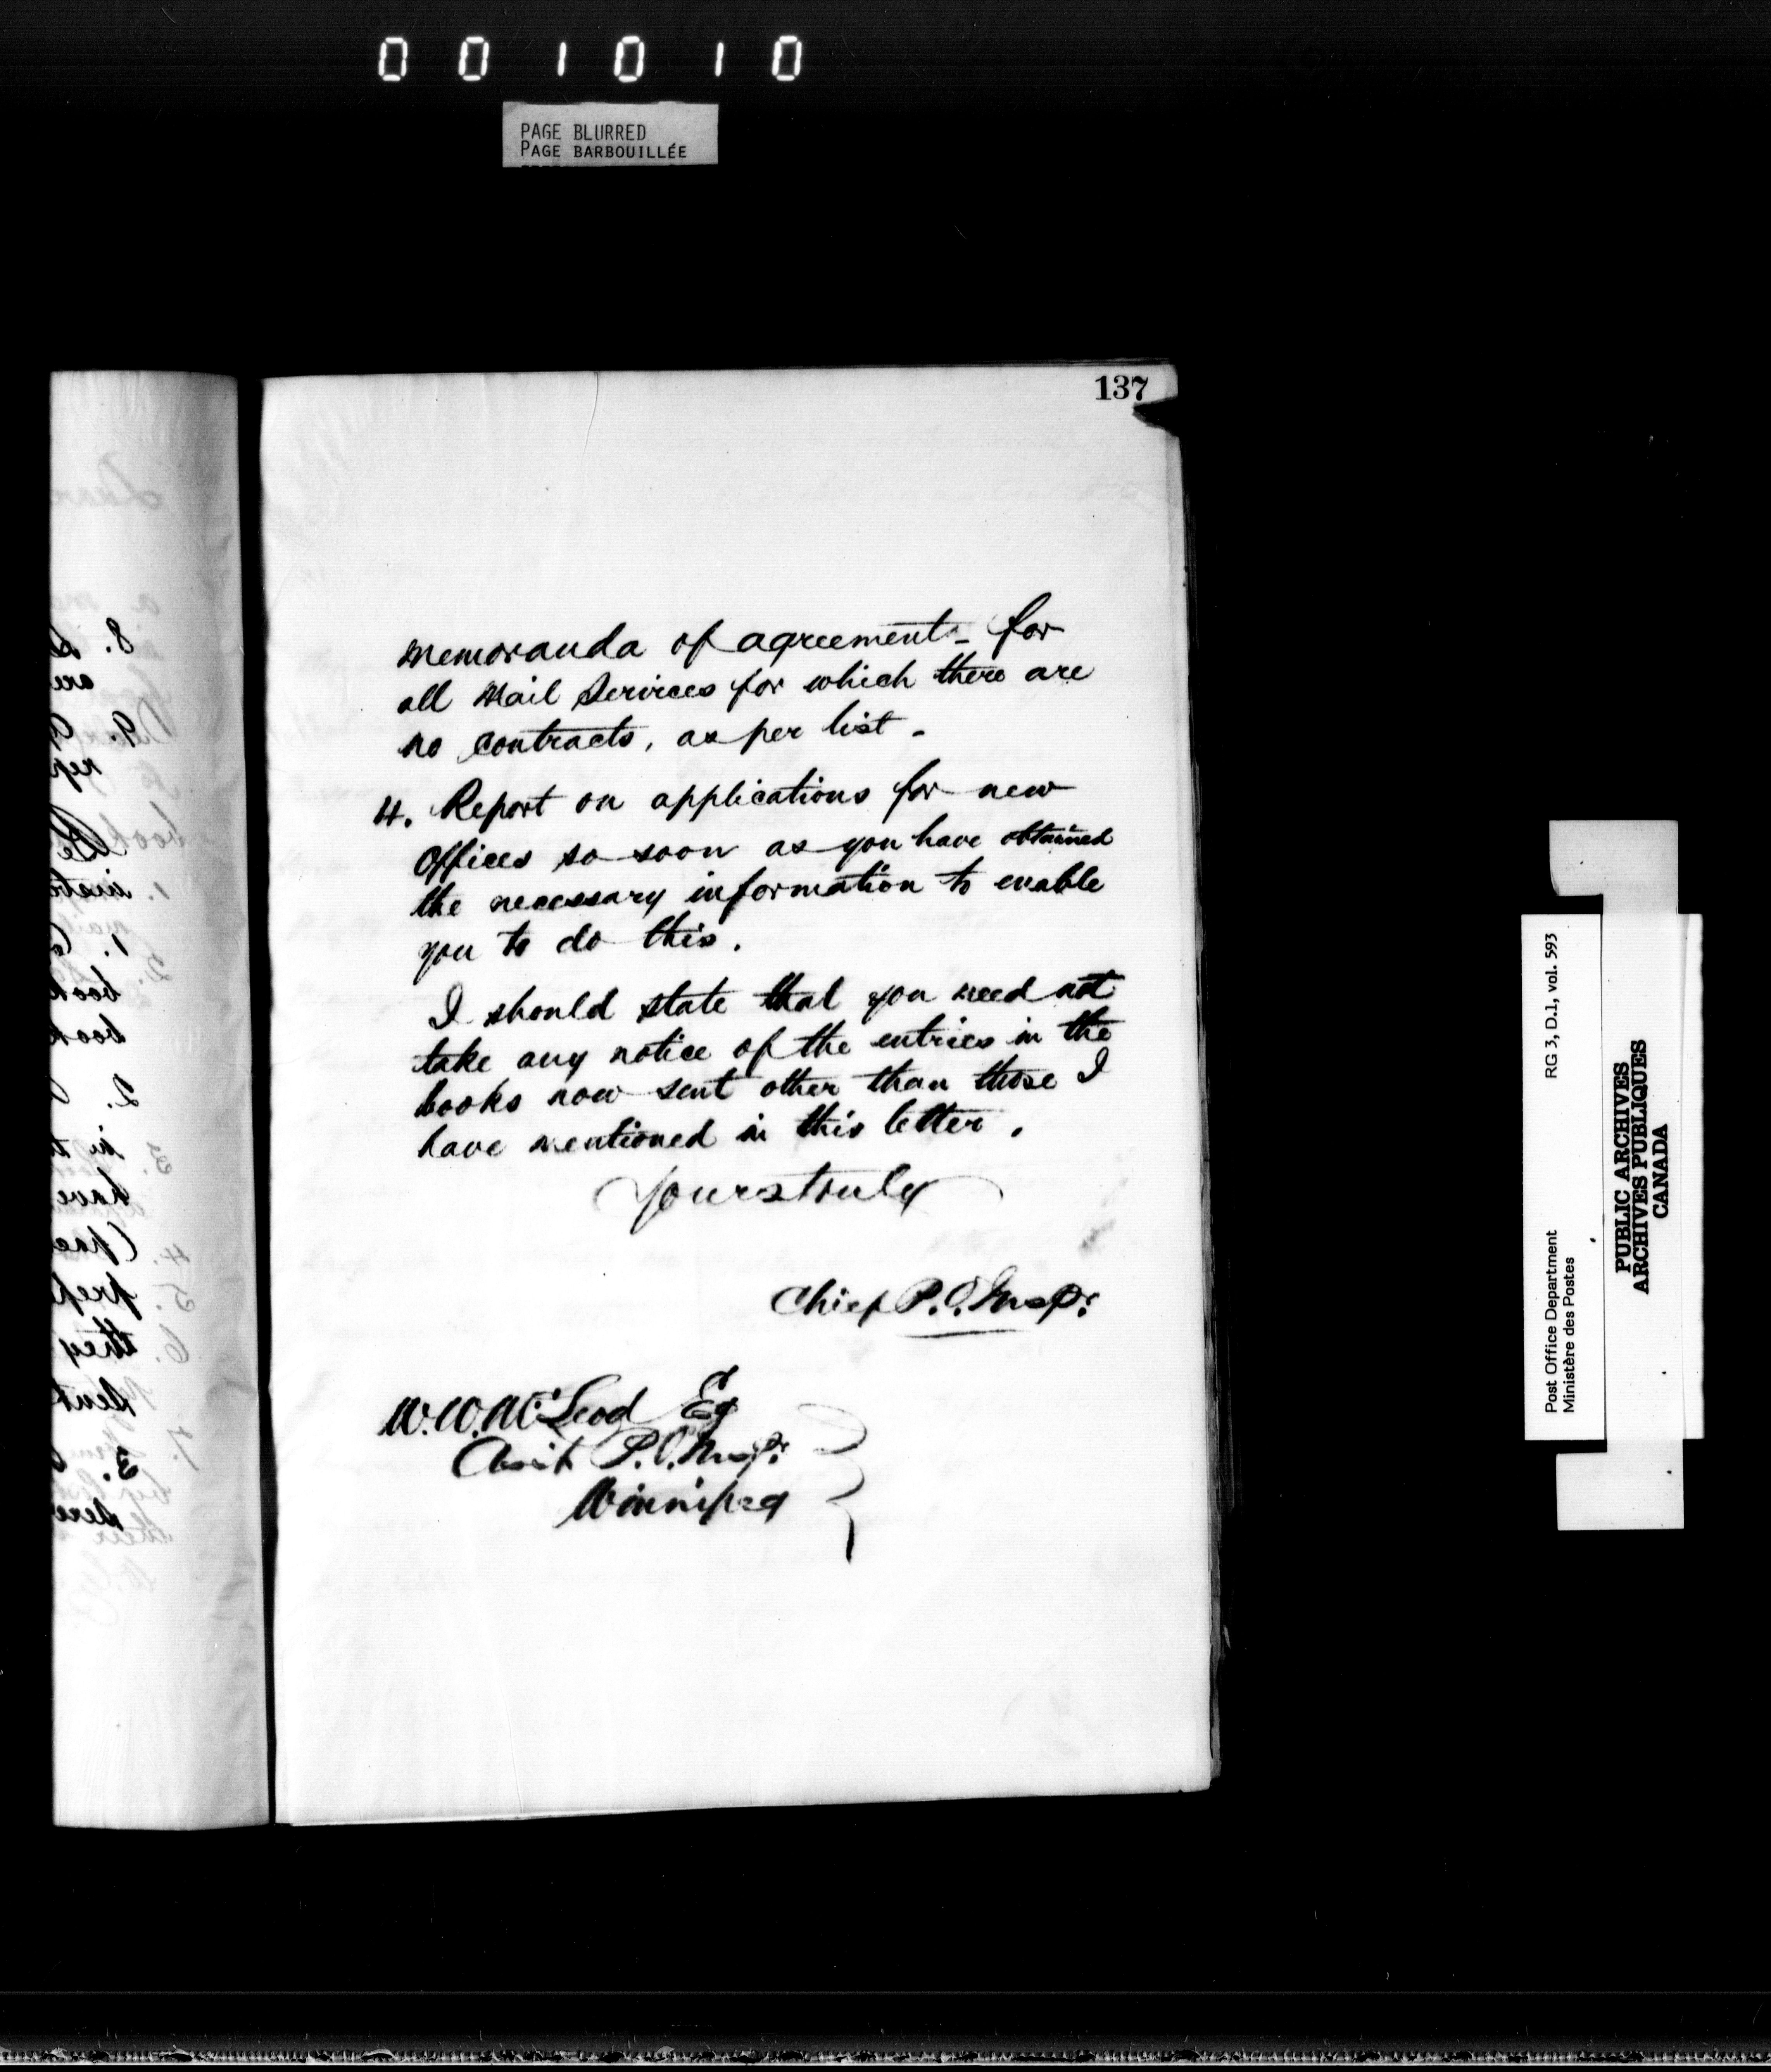 001010
PAGE BLURRED
PAGE BARBOUILLÉE
137
memoranda of agreement - for
all Mail Services for which there are
no contracts, as per list -
4. Report on applications for new
Offices so soon as you have obtained
the necessary information to enable
you to do this.
I should state that you need not
take any notice of the entries in the
books now sent other than those I
have mentioned in this letter.
Yours truly
Chief P.O. Inspr
W.W. McLeod Esq
Assit P.O. Inspr
Winnipeg
Post Office Department
Ministère des Postes
RG 3, D.1, vol. 593
PUBLIC ARCHIVES
ARCHIVES PUBLIQUES
CANADA